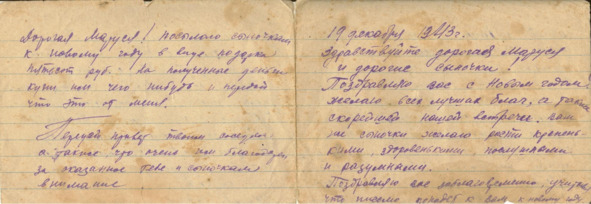 Дорогая Маруся! посылаю сыночкам
к новому году в виде подарка
пятьсот руб. На полученные деньги
купи им чего нибудь и передай
что это от меня.
Передай привет твоим соседям
а также что очень им благодарен
за оказанное тебе и сыночкам
внимание
19 декабря 1943г.
Здравствуйте дорогая Маруся
и дорогие сыночки!
Поздравляю вас с Новым годом
желаю всех лучших благ, а также
скорейшей нашей встречи. вам
же сыночки желаю расти крепень-
кими, здоровенькими послушными
и разумными.
Поздравляю вас заблаговременно, учитывая
что письмо к вам к новому году